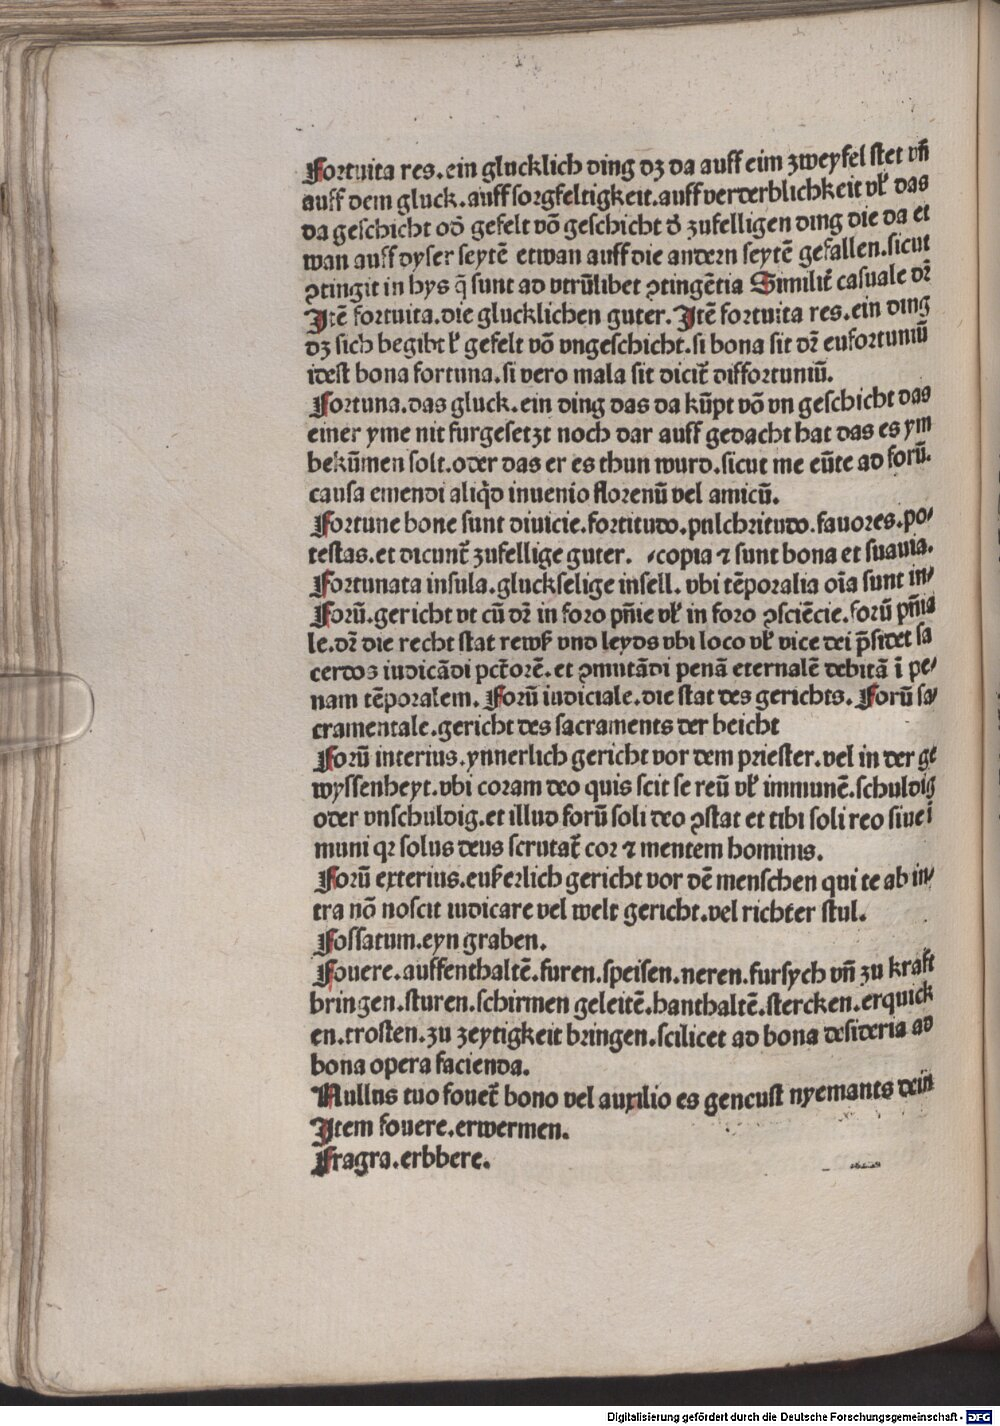 Fortuita res. ein glucklich ding dz da auff eim zweyfel stet vñ
auff dem gluck. auff sorgfeltigkeit. auff verderblichkeit vl̕ das
da geschicht od̕ gefelt võ geschicht d̕ zufelligen ding die da et
wan auff dyser seytẽ etwan auff die andern seytẽ gefallen. sicut
ꝯtingit in hys q̃ sunt ad vtrũlibet ꝯtingẽtia Similit̕ casuale dr̃
Itẽ fortuita. die glucklichen guter. Itẽ fortuita res. ein ding
dz sich begibt l̕ gefelt võ vngeschicht. si bona sit dr̃ eufortuniũ
idest bona fortuna. si vero mala sit dicit̃ diffortuniũ.
Fortuna. das gluck. ein ding das da kũpt võ vn geschicht das
einer yme nit furgesetzt noch dar auff gedacht hat das es ym
bekũmen solt. oder das er es thun wurd. sicut me eũte ad forũ.
causa emendi aliqd̕ inuenio florenũ vel amicũ.
Fortune bone sunt diuicie. fortitudo. pulchritudo. fauores. po⸗
testas. et dicunt̃ zufellige guter. ⸗copia ⁊ sunt bona et suauia.
Fortunata insula. gluckselige insell. vbi tẽporalia oĩa sunt in⸗
Forũ. gericht vt cũ dr̃ in foro pñie vl̕ in foro ꝯsciẽcie. forũ pñia
le. dr̃ die recht stat rewß vnd leyds vbi loco vl̕ vice dei p̃sidet sa
cerdos iudicãdi pct̃orẽ. et ꝯmutãdi penã eternalẽ debitã ĩ pe⸗
nam tẽporalem. Forũ iudiciale. die stat des gerichts. Forũ sa⸗
cramentale. gericht des sacraments der beicht
Forũ interius. ynnerlich gericht vor dem priester. vel in der ge
wyssenheyt. vbi coram deo quis scit se reũ vl̕ immunẽ. schuldig
oder vnschuldig. et illud forũ soli deo ꝯstat et tibi soli reo siue ĩ
muni qꝛ solus deus scrutat̃ cor ⁊ mentem hominis.
Forũ exterius. eußerlich gericht vor dẽ menschen qui te ab in⸗
tra nõ noscit iudicare vel welt gericht. vel richter stul.
Fossatum. eyn graben.
Fouere. auffenthaltẽ. furen. speisen. neren. fursych vñ zu kraft
bringen. sturen. schirmen geleitẽ. hanthaltẽ. stercken. erquick
en. trosten. zu zeytigkeit bringen. scilicet ad bona desideria ad
bona opera facienda.
Nullus tuo fouet̃ bono vel auxilio es geneust nyemants dein
Item fouere. erwermen.
Fragra. erbbere.
Digitalisierung gefördert durch die Deutsche Forschungsgemeinschaft - DFG